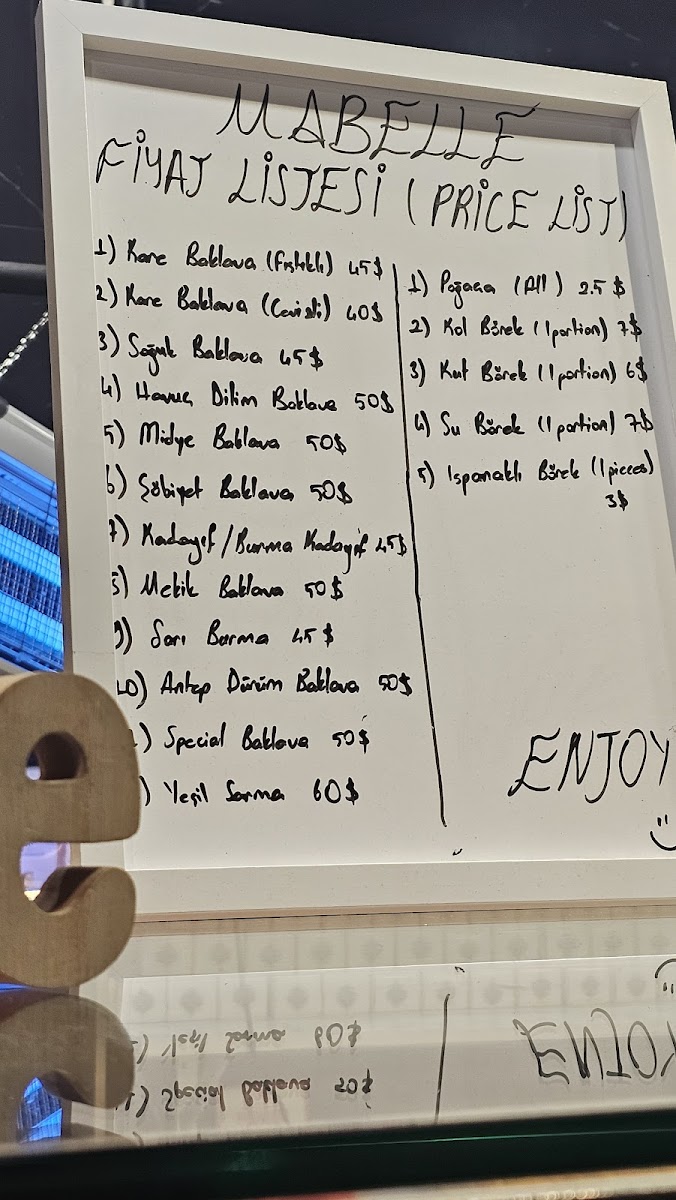 MABELLE
FİYAT LİSTESİ (PRICE LİST)
1) Kare Baklava (Fıstıklı) 45$
2) Kare Baklava (Cevizli) 40$
3) Soğuk Baklava 45$
4) Havuç Dilim Baklava 50$
5) Midye Baklava 50$
6) Şöbiyet Baklava 50$
7) Kadayıf / Burma Kadayıf 45$
8) Mekik Baklava 50$
9) Sarı Burma 45$
10) Antep Dürüm Baklava 50$
) Special Baklava 50$
) Yeşil Sarma 60$
1) Poğaca (All) 2.5 $
2) Kol Börek (1 portion) 7$
3) Kut Börek (1 portion) 6$
4) Su Börek (1 portion) 7$
5) Ispanaklı Börek (1 pieces)
3$
ENJOY
e